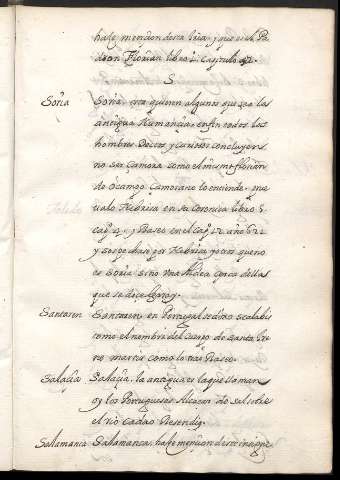 haze mencion desta Peña, y que es de Pe
dron Florian libro 1. capitulo 42.
S
Soria Soria, era quieren algunos que sea las
antigua Numancia, enfin todos los
hombres Doctos y curiosos concluyen
no ser Çamora como el mismo florian
de Ocampo Çamorano lo entiende, que
ualo Nebrisa en su Coronica libro 5.
cap. 4. y Vaseo en el cap. 12 año 621
y sospechase por Nebrisa que no
es Soria sino una Aldea cerca dellas
que se dice Garray.
Santaren Santaren, en Portugal se dixo scalabis
como el nombre del cuerpo de Santa Ire
ne martir como lo trae Vaseo.
Salaçia Salaçia, la antigua es la que llaman
oy los Portugueses Alcaçar do sal sobre
el rio Cadao Resendio.
Salamanca Salamanca, haze mencion deste